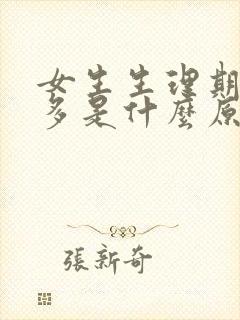 女生生理期
多是什麼原
張新奇